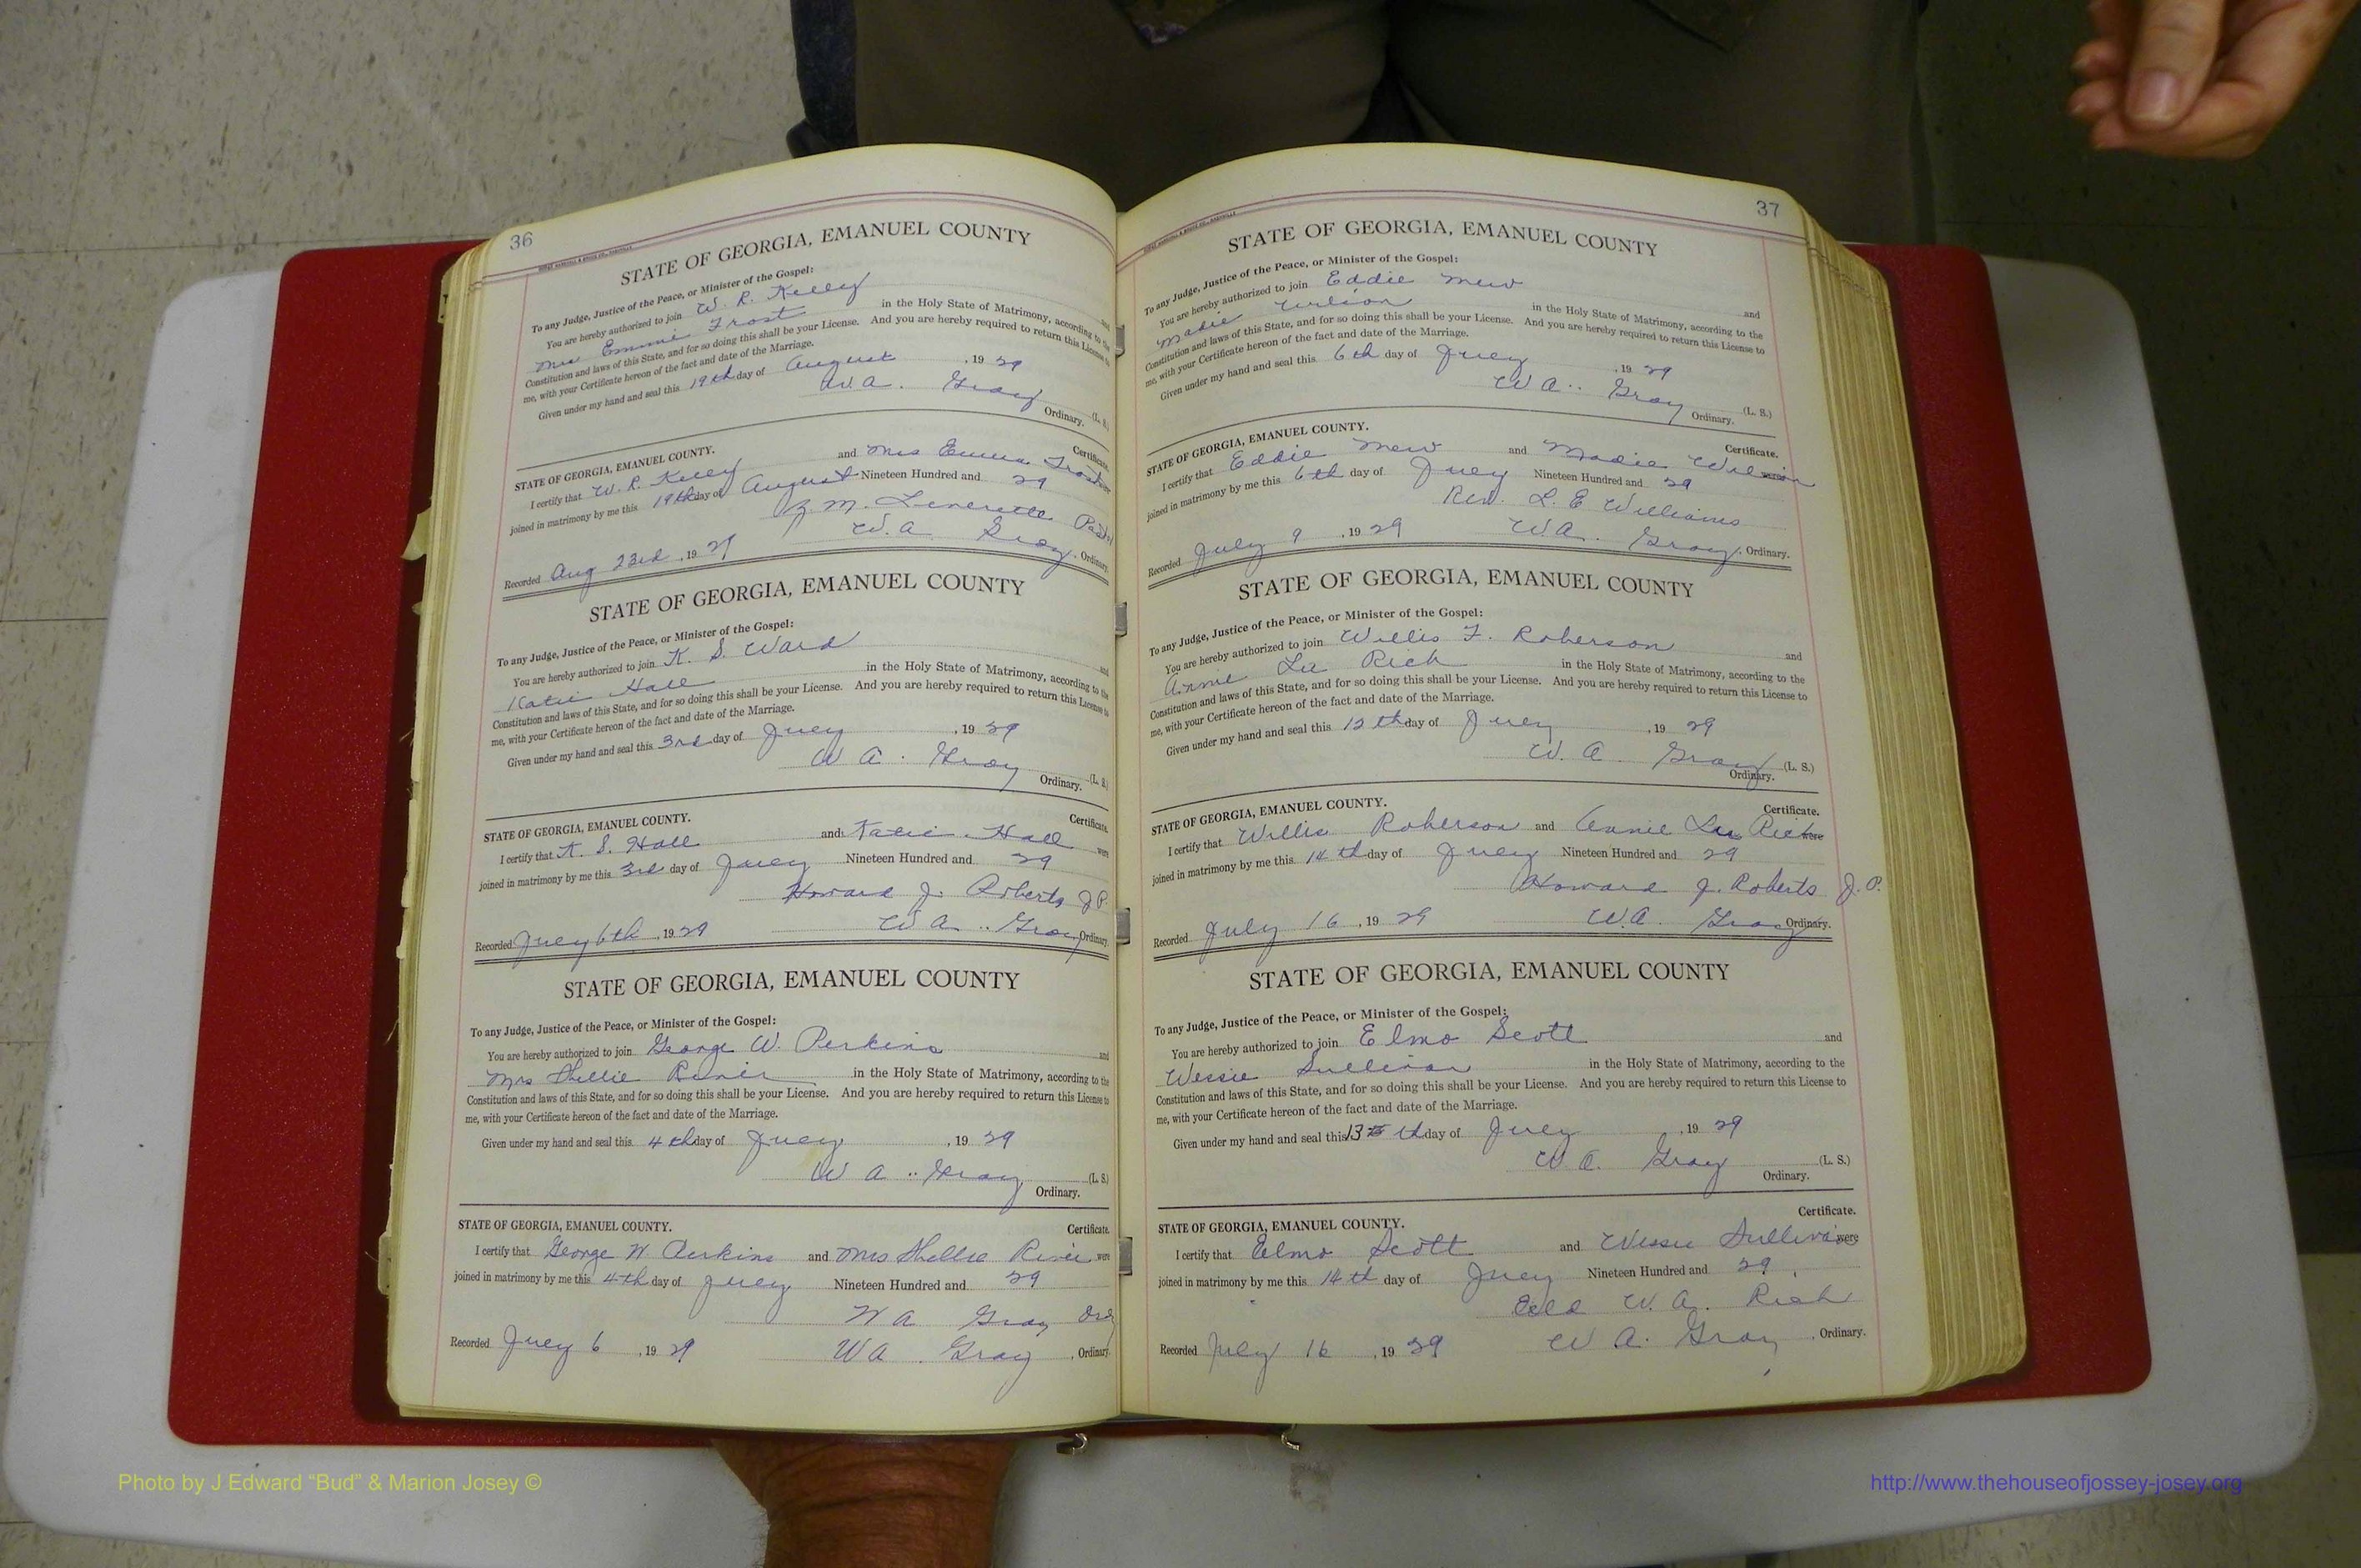 36
STATE OF GEORGIA, EMANUEL COUNTY
To any Judge, Justice of the Peace, or Minister of the Gospel:
You are hereby authorized to join W. R. Kelly and
Mrs Emmie Frost in the Holy State of Matrimony, according to the
Constitution and laws of this State, and for so doing this shall be your License. And you are hereby required to return this License to
me, with your Certificate hereon of the fact and date of the Marriage.
Given under my hand and seal this 19th day of August, 1929
W. A. Gray (L. S.)
Ordinary.
STATE OF GEORGIA, EMANUEL COUNTY. Certificate.
I certify that W. R. Kelly and Mrs Emma Frost were
joined in matrimony by me this 19th day of August Nineteen Hundred and 29
M. Leverette
Recorded Aug 23rd, 1929 W. A. Gray, Ordinary.
STATE OF GEORGIA, EMANUEL COUNTY
To any Judge, Justice of the Peace, or Minister of the Gospel:
You are hereby authorized to join K. S. Ward and
Katie Hall in the Holy State of Matrimony, according to the
Constitution and laws of this State, and for so doing this shall be your License. And you are hereby required to return this License to
me, with your Certificate hereon of the fact and date of the Marriage.
Given under my hand and seal this 3rd day of July, 1929
W. A. Gray (L. S.)
Ordinary.
STATE OF GEORGIA, EMANUEL COUNTY. Certificate.
I certify that K. S. Hall and Katie Hall were
joined in matrimony by me this 3rd day of July Nineteen Hundred and 29
Howard J. Roberts J P.
Recorded July 6th, 1929 W. A. Gray Ordinary.
STATE OF GEORGIA, EMANUEL COUNTY
To any Judge, Justice of the Peace, or Minister of the Gospel:
You are hereby authorized to join George W. Perkins and
Mrs Shellie Riner in the Holy State of Matrimony, according to the
Constitution and laws of this State, and for so doing this shall be your License. And you are hereby required to return this License to
me, with your Certificate hereon of the fact and date of the Marriage.
Given under my hand and seal this 4th day of July, 1929
W A. Gray (L. S.)
Ordinary.
STATE OF GEORGIA, EMANUEL COUNTY. Certificate.
I certify that George W. Perkins and Mrs Shellie Riner were
joined in matrimony by me this 4th day of July Nineteen Hundred and 29
W A Gray Ord
Recorded July 6, 1929 W A. Gray, Ordinary.
37
STATE OF GEORGIA, EMANUEL COUNTY
To any Judge, Justice of the Peace, or Minister of the Gospel:
You are hereby authorized to join Eddie Mew and
Madie Wilson in the Holy State of Matrimony, according to the
Constitution and laws of this State, and for so doing this shall be your License. And you are hereby required to return this License to
me, with your Certificate hereon of the fact and date of the Marriage.
Given under my hand and seal this 6th day of July, 1929
W A. Gray (L. S.)
Ordinary.
STATE OF GEORGIA, EMANUEL COUNTY. Certificate.
I certify that Eddie Mew and Madie Wilson were
joined in matrimony by me this 6th day of July Nineteen Hundred and 29
Rev. L. E Williams
Recorded July 9, 1929 W. A. Gray, Ordinary.
STATE OF GEORGIA, EMANUEL COUNTY
To any Judge, Justice of the Peace, or Minister of the Gospel:
You are hereby authorized to join Willis F. Roberson and
Annie Lu Rich in the Holy State of Matrimony, according to the
Constitution and laws of this State, and for so doing this shall be your License. And you are hereby required to return this License to
me, with your Certificate hereon of the fact and date of the Marriage.
Given under my hand and seal this 12th day of July, 1929
W. A. Gray (L. S.)
Ordinary.
STATE OF GEORGIA, EMANUEL COUNTY. Certificate.
I certify that Willis Roberson and Annie Lu Rich were
joined in matrimony by me this 14th day of July Nineteen Hundred and 29
Howard J. Roberts J. P.
Recorded July 16, 1929 W. A. Gray Ordinary.
STATE OF GEORGIA, EMANUEL COUNTY
To any Judge, Justice of the Peace, or Minister of the Gospel:
You are hereby authorized to join Elmo Scott and
Wessie Sullivan in the Holy State of Matrimony, according to the
Constitution and laws of this State, and for so doing this shall be your License. And you are hereby required to return this License to
me, with your Certificate hereon of the fact and date of the Marriage.
Given under my hand and seal this 13th day of July, 1929
W. A. Gray (L. S.)
Ordinary.
STATE OF GEORGIA, EMANUEL COUNTY. Certificate.
I certify that Elmo Scott and Wessie Sullivan were
joined in matrimony by me this 14th day of July Nineteen Hundred and 29
Eld W. A. Rich
Recorded July 16, 1929 W A. Gray, Ordinary.
Photo by J Edward “Bud” & Marion Josey ©
http://www.thehouseofjossey-josey.org